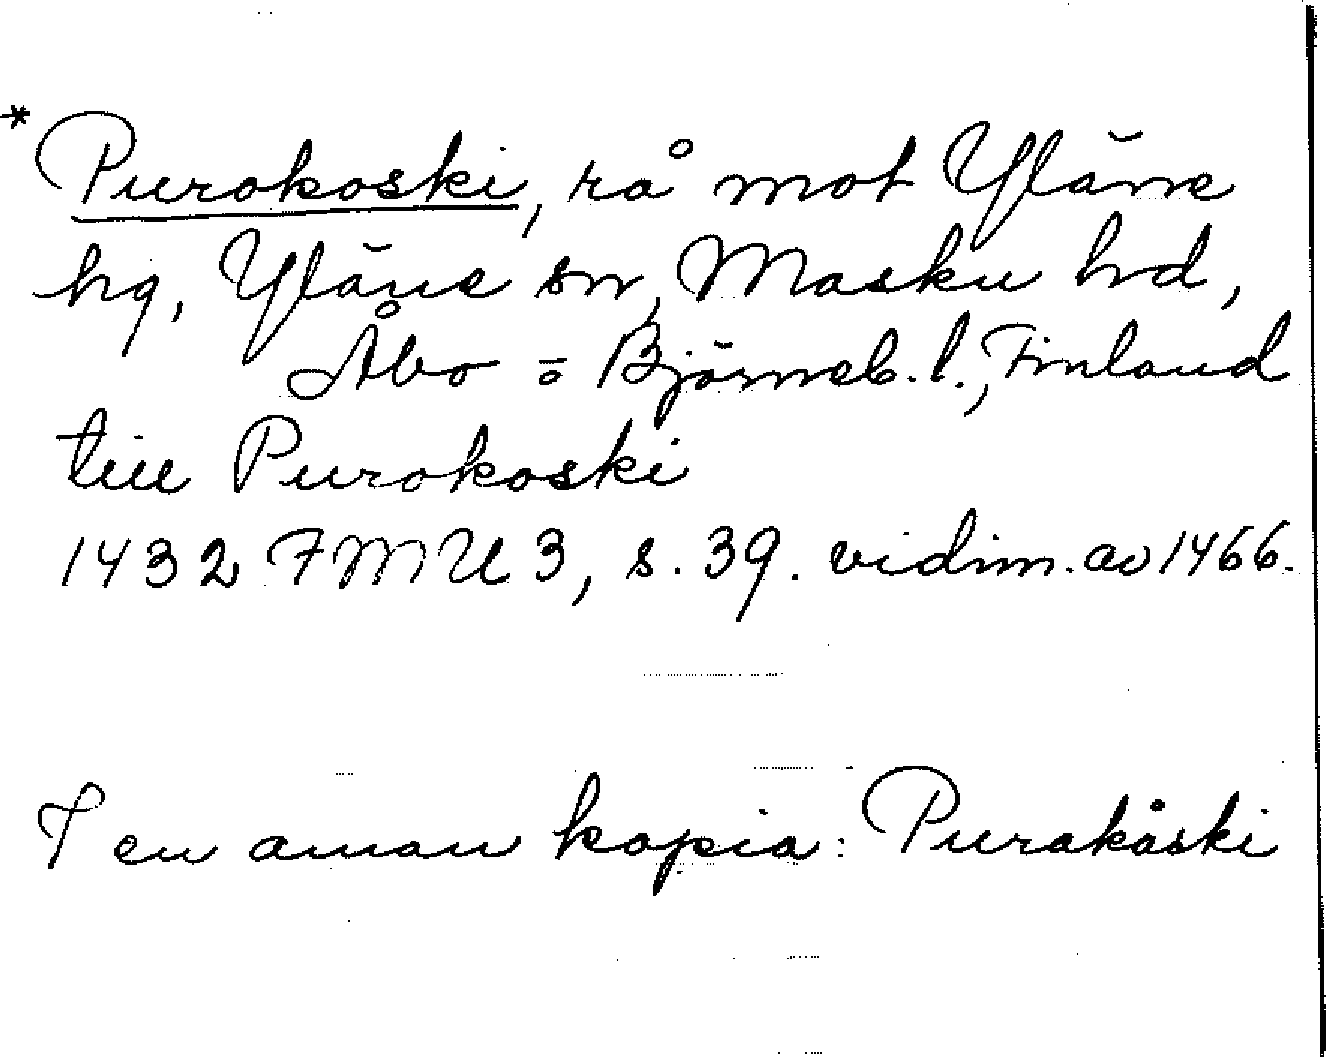 * Purokoski, rå mot Yläne
hg, Yläne sn, Masku hd,
Åbo = Björneb. l., Finland
till Purokoski
1432 FMU 3, s. 39. vidim. av 1466.
I en annan kopia: Purakåski